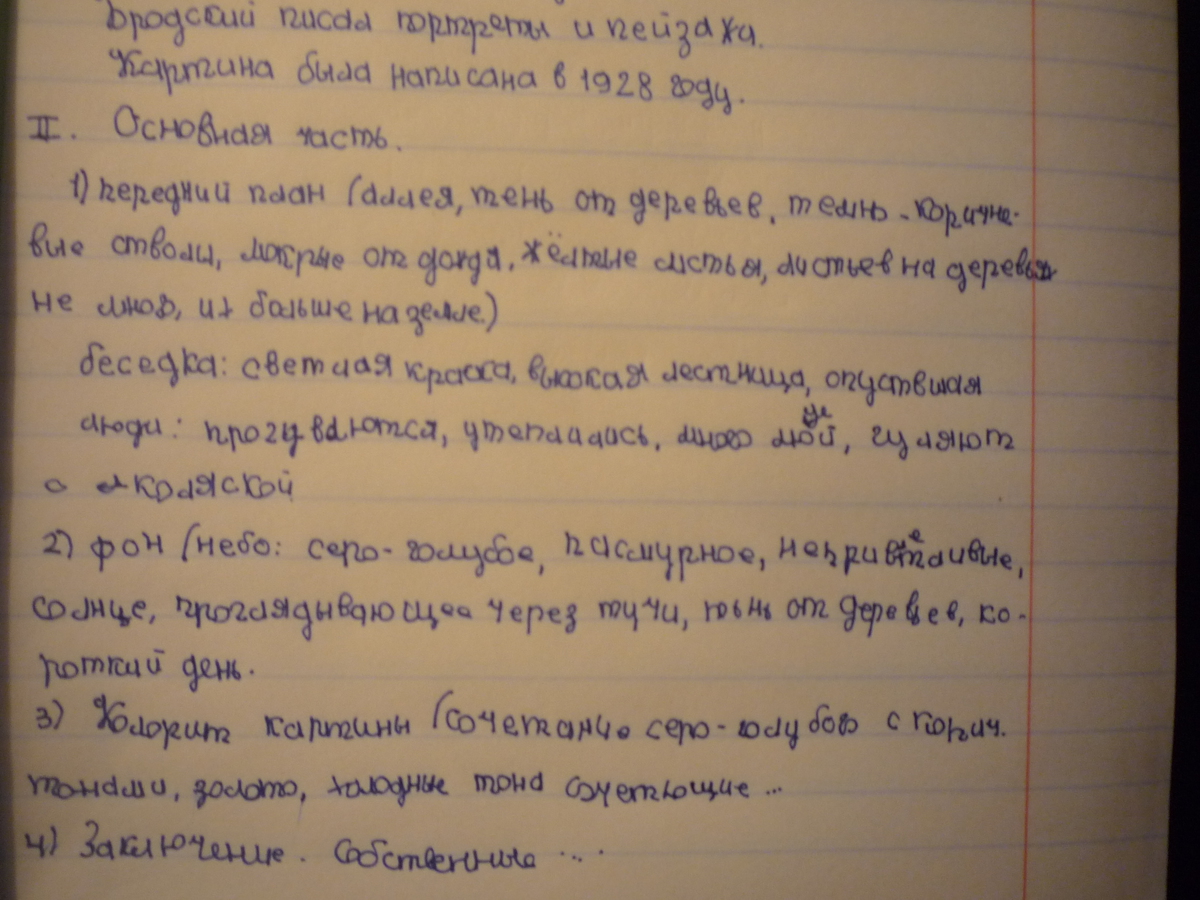 Бродский писал портреты и пейзажа.
Картина была написана в 1928 году.
II. Основная часть.
1) передний план (аллея, тень от деревьев, темно-коричне-
вые стволы, мокрые от дождя, жёлтые листья, листьев на деревьях
не много, их больше на земле)
беседка: светлая краска, высокая лестница, опустевшая
люди: прогуваются, утеплились, много людей, гуляют
с коляской
2) фон (небо: серо-голубое, пасмурное, неприветливые,
солнце, проглядывающее через тучи, тень от деревьев, ко-
роткий день.
3) Колорит картины (сочетание серо-голубого с корич.
тонами, золото, холодные тона сочетающие ...
4) Заключение. Собственные ...